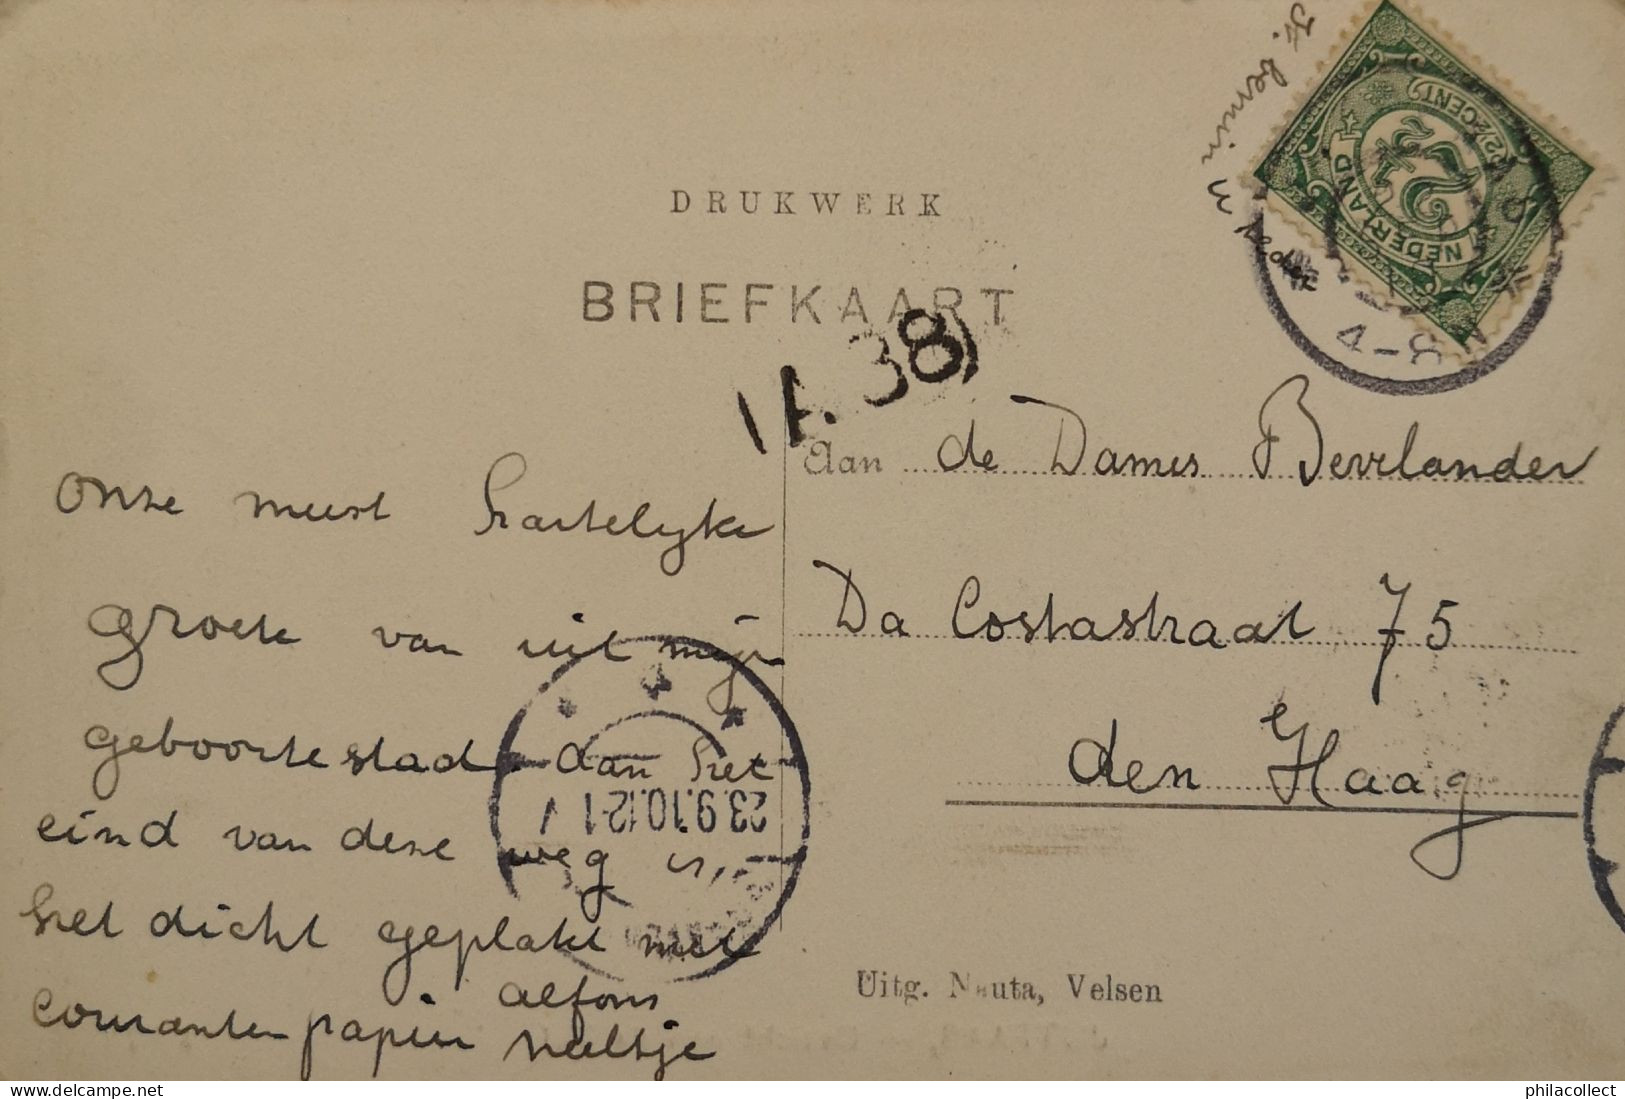 DRUKWERK
BRIEFKAART
(A.38)
NEDERLAND
2½ CENT
4-8 V
Aan de Dames Bevelander
Da Costastraat 75
den Haag
Onze meest hartelyke
groete van uit mijn
geboortestad aan het
eind van deze weg is
het dicht geplakt met
couranten papier
alfons
neeltje
23.9.10.12-1 V
Uitg. Nauta, Velsen
philacollect